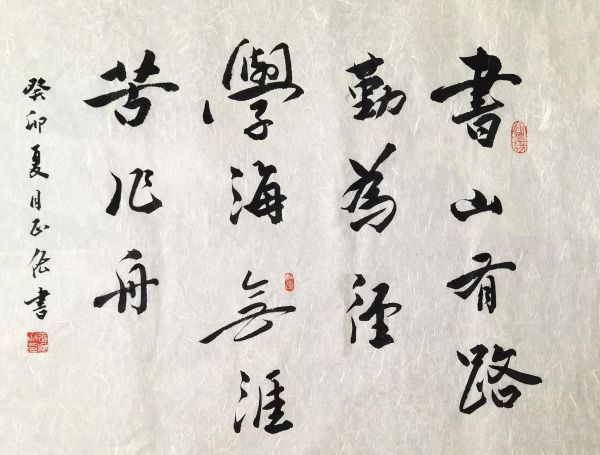 書山有路
勤為徑
學海無涯
苦作舟
癸卯夏月正名書